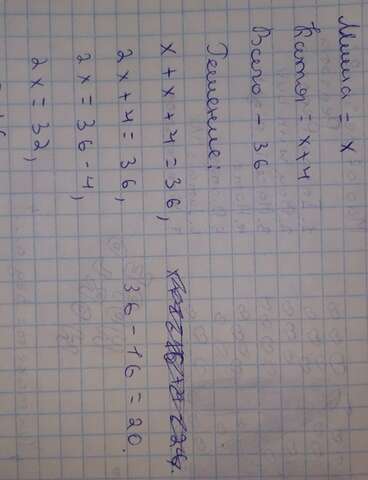 Миша = x
Катя = x+4
Всего - 36
Решение:
x + x + 4 = 36,
2x + 4 = 36, 36 - 16 = 20.
2x = 36 - 4,
2x = 32,